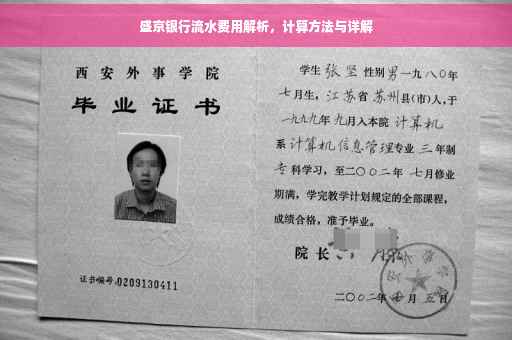 盛京银行流水费用解析，计算方法与详解
西安外事学院
毕业证书
证书编号:0209130411
学生 张坚 性别男一九八〇年
七月生，江苏省苏州县(市)人,于
一九九九年九月入本院 计算机
系计算机信息管理专业 三 年制
专科学习，至二〇〇二年 七月修业
期满，学完教学计划规定的全部课程，
成绩合格，准予毕业。
院长
二〇〇二年 月 五日